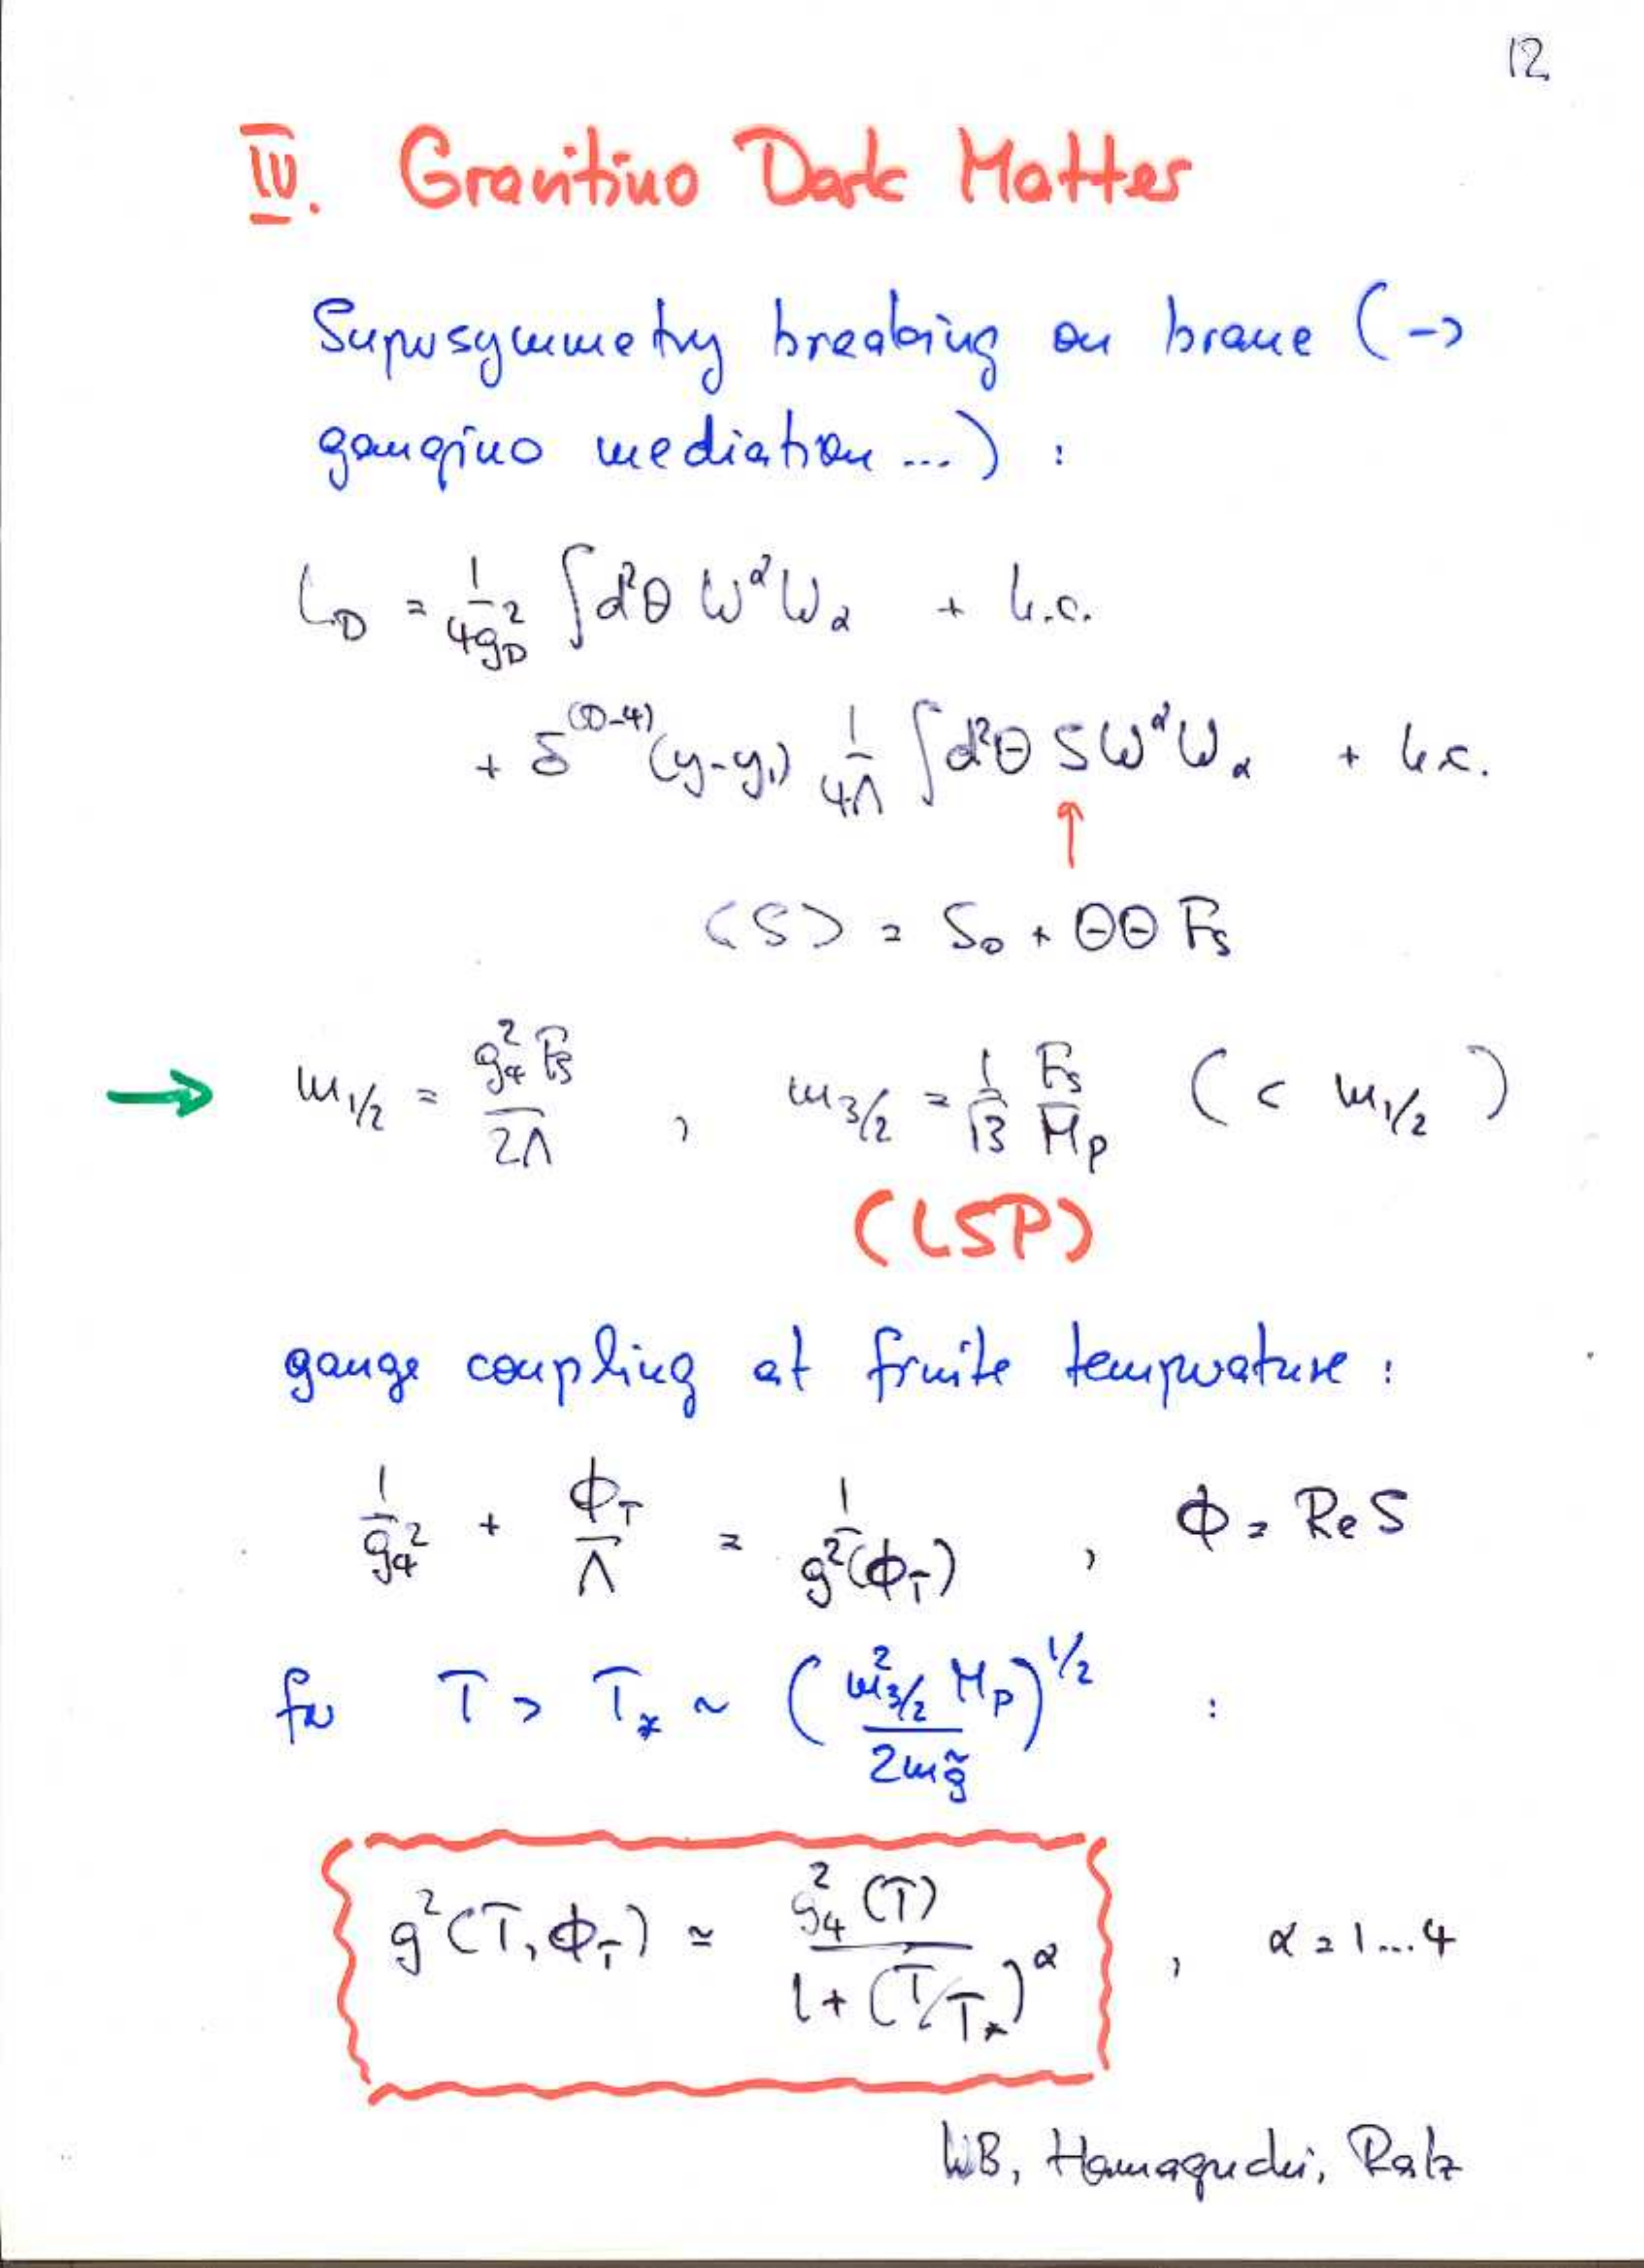 12
IV. Gravitino Dark Matter
Supersymmetry breaking on brane (→
gaugino mediation ...) :
L_D = 1/(4g_D^2) ∫d²θ W^α W_α + h.c.
+ δ^(D-4)(y-y₁) 1/(4Λ) ∫d²θ S W^α W_α + h.c.
↑
⟨S⟩ = S₀ + θθ F_S
→ m_1/2 = g_4^2 F_S/(2Λ) , m_3/2 = 1/√3 F_S/M_P ( < m_1/2 )
(LSP)
gauge coupling at finite temperature :
1/g_4^2 + ϕ_T/Λ = 1/g²(ϕ_T) , ϕ = Re S
for T > T_* ~ ( m_3/2^2 M_P / 2m_g̃ )^1/2 :
g²(T, ϕ_T) ≃ g_4^2(T) / (1 + (T/T_*)^α) , α = 1...4
WB, Hamaguchi, Ratz